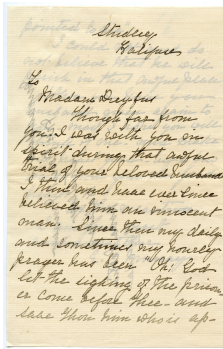 Studley
Halifax
To
Madam Dreyfus
Though far from
you I was with you in
spirit during that awful
trial of your beloved husband
I then, and have ever since
believed him an innocent
man. Since then my daily
and sometimes my hourly
prayer has been "Oh! God
let the sighing of the prison
er come before thee- and
save thou him who is ap-